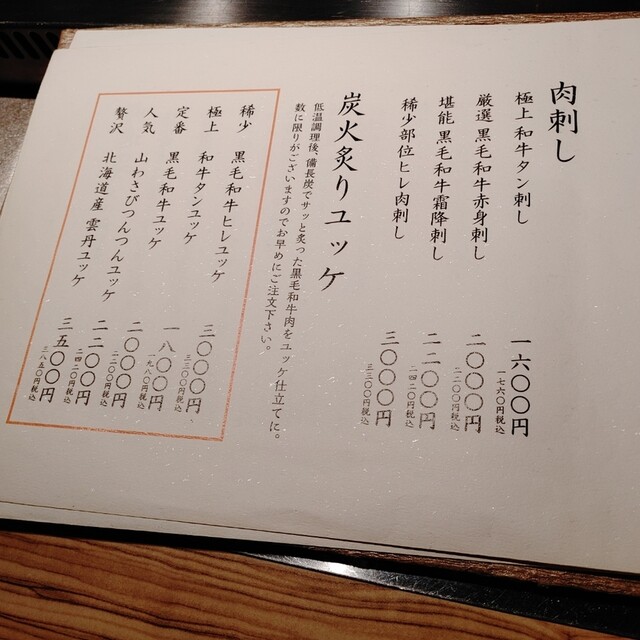 肉刺し
極上 和牛タン刺し 一六〇〇円
一七六〇円税込
厳選 黒毛和牛赤身刺し 二〇〇〇円
二二〇〇円税込
堪能 黒毛和牛霜降刺し 二二〇〇円
二四二〇円税込
稀少部位ヒレ肉刺し 三〇〇〇円
三三〇〇円税込
炭火炙りユッケ
低温調理後、備長炭でサッと炙った黒毛和牛肉をユッケ仕立てに。
数に限りがございますのでお早めにご注文下さい。
稀少 黒毛和牛ヒレユッケ 三〇〇〇円
三三〇〇円税込
極上 和牛タンユッケ 一八〇〇円
一九八〇円税込
定番 黒毛和牛ユッケ 二〇〇〇円
二二〇〇円税込
人気 山わさびつんつんユッケ 二二〇〇円
二四二〇円税込
贅沢 北海道産 雲丹ユッケ 三五〇〇円
三八五〇円税込